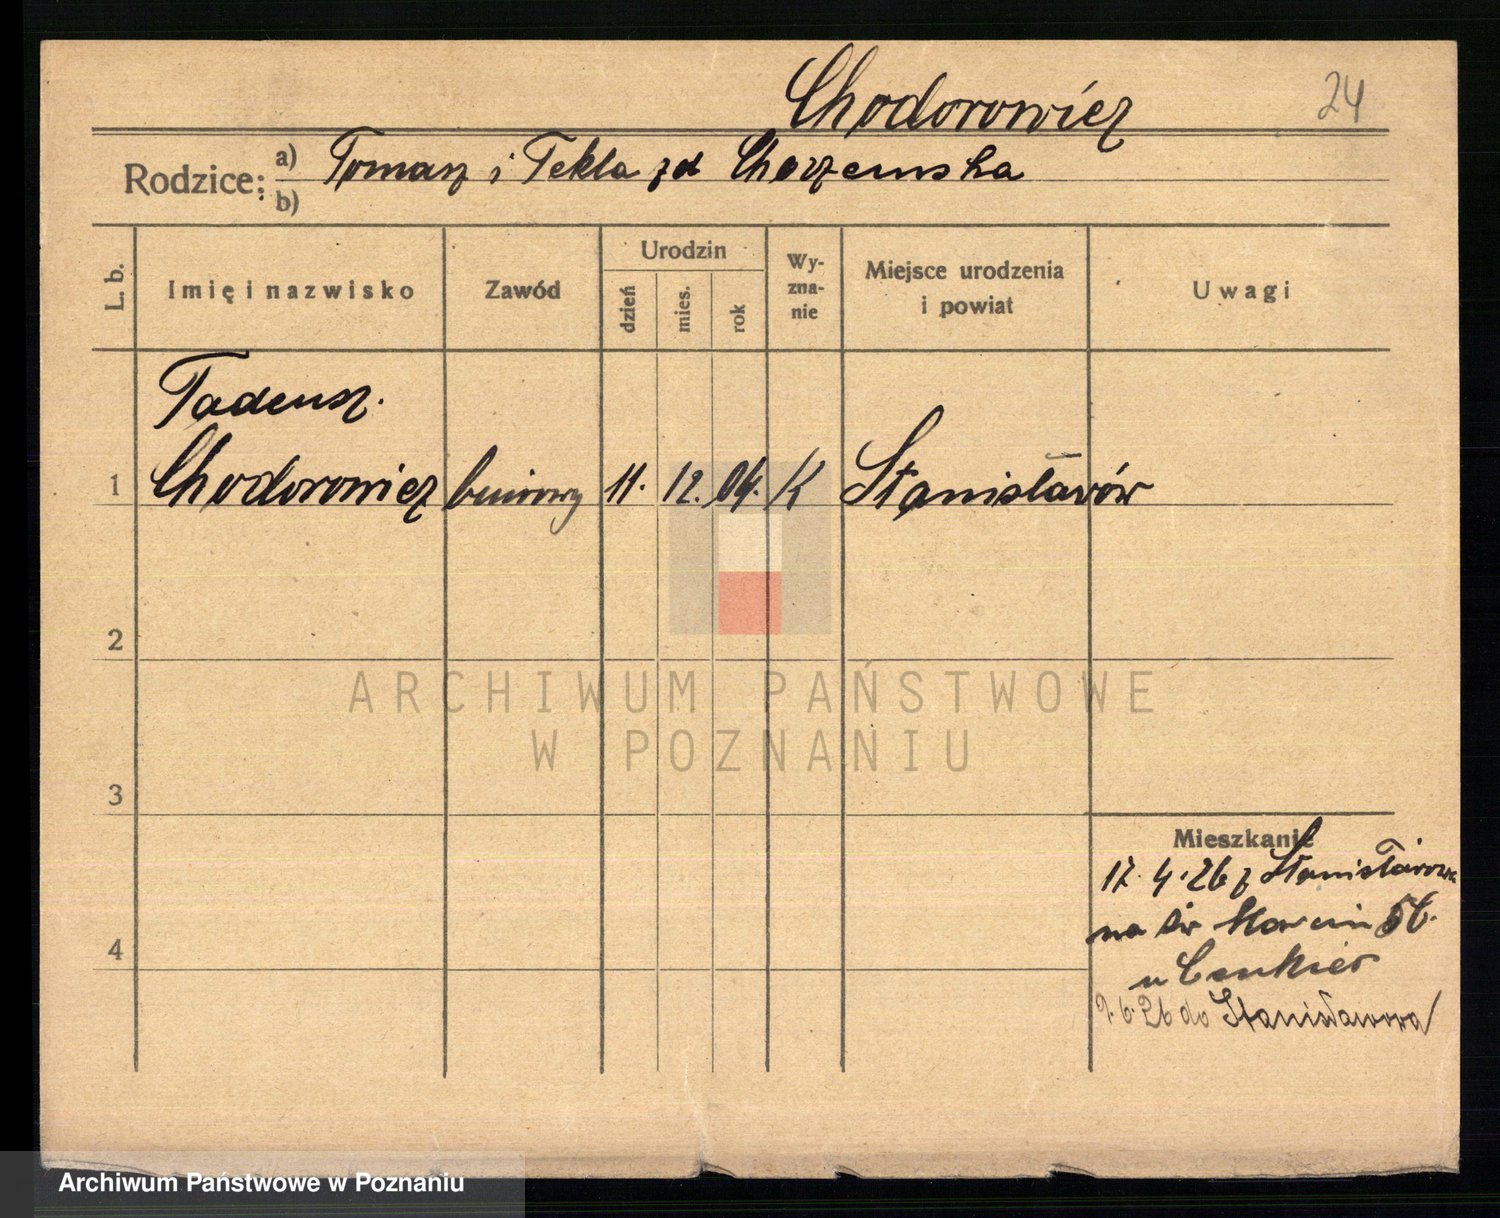 Chodorowicz
24
Rodzice: a) Tomasz i Tekla zd Chorzemska
b)
L. b.
Imię i nazwisko
Zawód
Urodzin
dzień
mies.
rok
Wy-
zna-
nie
Miejsce urodzenia
i powiat
Uwagi
Tadeusz
1 Chodorowicz biurowy 11. 12. 04. K Stanisławów
2
ARCHIWUM PAŃSTWOWE
W POZNANIU
3
Mieszkanie
17.4.26 z Stanisławowa
na Św Marcin 56.
u Cenkier
9.6.26 do Stanisławowa
4
Archiwum Państwowe w Poznaniu